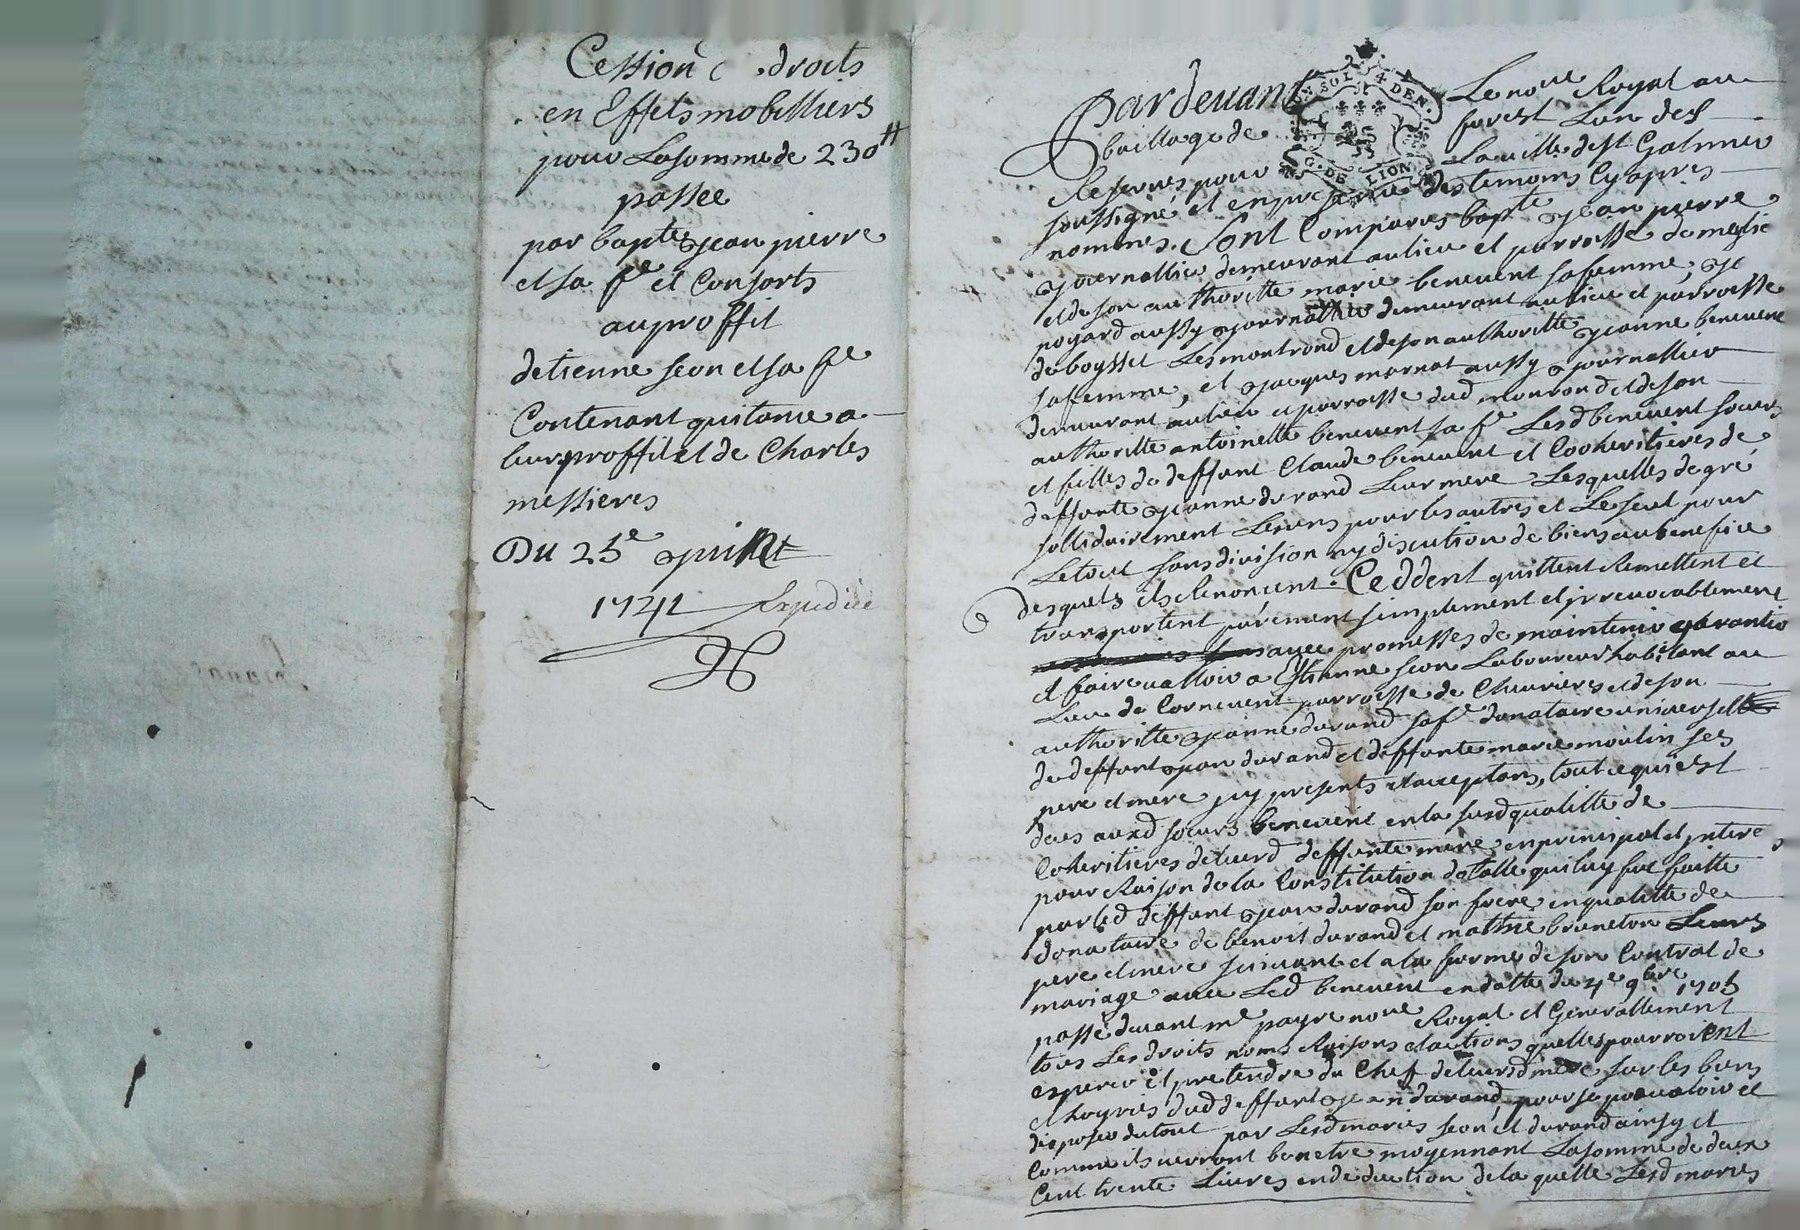 Cession droits
en Effets mobilliers
pour Lasomme de 230 ₶
passée
par bapte Jean pierre
et sa fe et Consorts
au proffit
detienne seon et sa fe
Contenant quitance a
leur proffit et de Charles
messieres
Du 25e Juillet
1741 Expediée
Pardevant Le nore Royal au
SOL 4 DEN.
G. DE LION
bailliage de forest Lun des
Reservés pour La ville de st Galmier
soussigné et en presence des temoins Cyapres
nommés. Sont Comparus bapte Jean pierre
Journallier demeurant au lieu et parroisse de
et de son authoritte marie benevent sa femme,
noyard aussy Journallier demeurant au lieu et parroisse
de boysset Les montrond et de son authoritte Jeanne benevent
sa femme, et Jacques marnat aussy Journallier
demeurant au lieu et parroisse dud monrond et de son
authoritte antoinette benevent sa fe Lesd benevent soeurs
et filles de deffunt Claude benevent et Cooheritieres de
deffunte Jeanne durand Leur mere Lesquelles de gré
sollidairement Lesuns pour les autres et Le seul pour
Le tout sans division ny discution de biens au benefice
desquels ils Renoncent. Ceddent quittent Remettent et
transportent purement simplement et jrrevocablement
avec promesses de maintenir garantir
et faire valloir a Estienne seon Laboureur habitant au
Lieu de Cornevent parroisse de Chevrieres et de son
authoritte Jeanne durand sa fe donataire universelle
de deffunt Jean durand et deffunte marie moulin ses
pere et mere jcy presents et acceptans, tout ce qui est
deus auxd soeurs benevent en la susd qualitte de
Coheritieres de leurd deffunte mere en principal et jnterets
pour Raison de la Constitution dotalle qui luy fut faitte
par led deffunt Jean durand son frere en qualitte de
donataire de benoit durand et mathie bruneton Leurs
pere et mere suivant et a la forme de son Contrat de
mariage avec Led benevent en datte du 4e 9bre 1705
passé devant me payre nore Royal et Generallement
tous Les droits noms Raisons et actions quelles pourroient
esperer et pretendre du Chef de leursd mere sur les biens
et hoyries dud deffunt Jean durand, pour se prevaloir et
disposer du tout par Lesd maries seon et durand ainsy et
Comme ils verront bon etre moyennant Lasomme de deux
Cent trente Livres en deduction de la quelle Lesd maries